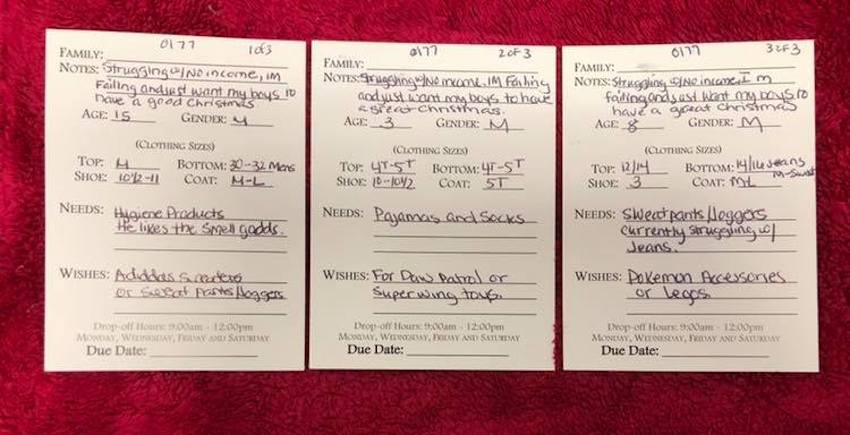 0177 1 of 3
FAMILY:
NOTES: Struggling w/ No income, IM
Failing and just want my boys to
have a good Christmas
AGE: 15 GENDER: M
(CLOTHING SIZES)
TOP: M BOTTOM: 30-32 Mens
SHOE: 10½-11 COAT: M-L
NEEDS: Hygiene Products
He likes the smell gadds.
WISHES: Adiddas Sneakers
or Sweat Pants/Joggers
Drop-off Hours: 9:00am - 12:00pm
MONDAY, WEDNESDAY, FRIDAY AND SATURDAY
Due Date:
0177 2 of 3
FAMILY:
NOTES: Struggling w/ No income, IM Failing
and just want my boys to have
a great Christmas.
AGE: 3 GENDER: M
(CLOTHING SIZES)
TOP: 4T-5T BOTTOM: 4T-5T
SHOE: 10-10½ COAT: 5T
NEEDS: Pajamas and Socks
WISHES: For Paw Patrol or
Super wing toys.
Drop-off Hours: 9:00am - 12:00pm
MONDAY, WEDNESDAY, FRIDAY AND SATURDAY
Due Date:
0177 3 of 3
FAMILY:
NOTES: Struggling w/ No income, I m
failing and just want my boys to
have a great Christmas
AGE: 8 GENDER: M
(CLOTHING SIZES)
TOP: 12/14 BOTTOM: 14/16 Jeans
M-Sweat
SHOE: 3 COAT: ML
NEEDS: Sweatpants/Joggers
currently struggling w/
Jeans.
WISHES: Pokemon Accessories
or Legos
Drop-off Hours: 9:00am - 12:00pm
MONDAY, WEDNESDAY, FRIDAY AND SATURDAY
Due Date: